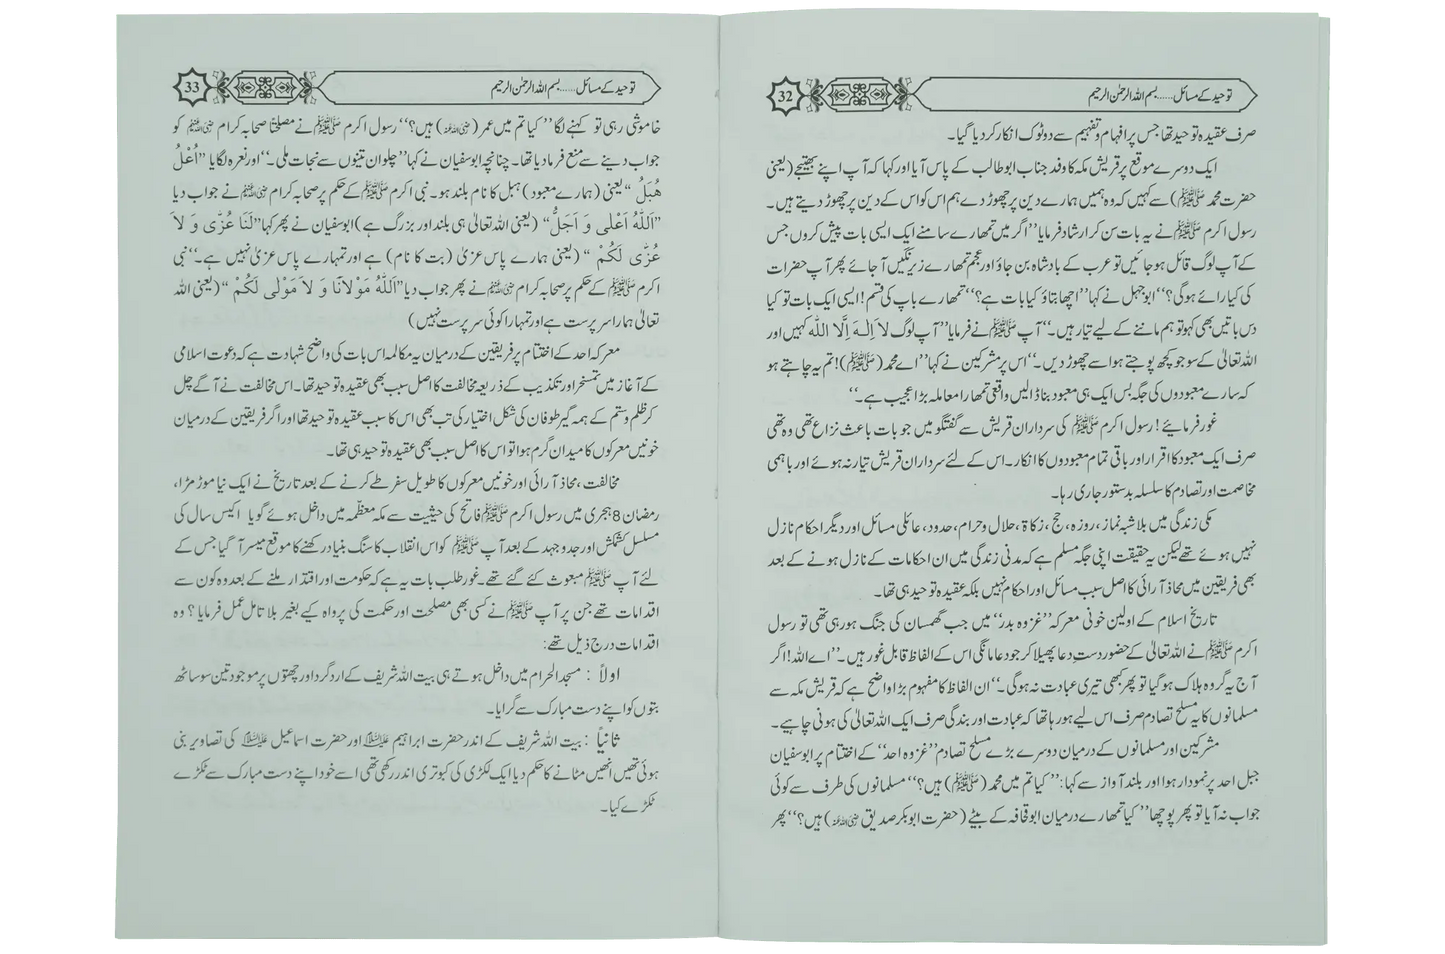 توحید کے مسائل ...... بسم اللہ الرحمٰن الرحیم
32
صرف عقیدہ توحید تھا جس پر افہام و تفہیم سے دو ٹوک انکار کر دیا گیا۔
ایک دوسرے موقع پر قریش مکہ کا وفد جناب ابو طالب کے پاس آیا اور کہا کہ آپ اپنے بھتیجے (یعنی
حضرت محمد ﷺ) سے کہیں کہ وہ ہمیں ہمارے دین پر چھوڑ دے ہم اس کو اس کے دین پر چھوڑ دیتے ہیں۔
رسول اکرم ﷺ نے یہ بات سن کر ارشاد فرمایا ’’اگر میں تمھارے سامنے ایک ایسی بات پیش کروں جس
کے آپ لوگ قائل ہو جائیں تو عرب کے بادشاہ بن جاؤ اور عجم تمھارے زیر نگیں آ جائے پھر آپ حضرات
کی کیا رائے ہوگی؟‘‘ ابو جہل نے کہا ’’اچھا بتاؤ کیا بات ہے؟‘‘ تمھارے باپ کی قسم! ایسی ایک بات تو کیا
دس باتیں بھی کہو تو ہم ماننے کے لیے تیار ہیں۔‘‘ آپ ﷺ نے فرمایا ’’آپ لوگ لَا اِلٰـہَ اِلَّا اللّٰہ کہیں اور
اللہ تعالیٰ کے سوا جو کچھ پوجتے ہو اسے چھوڑ دیں۔‘‘ اس پر مشرکین نے کہا ’’اے محمد (ﷺ)! تم یہ چاہتے ہو
کہ سارے معبودوں کی جگہ بس ایک ہی معبود بنا ڈالیں واقعی تمھارا معاملہ بڑا عجیب ہے۔‘‘
غور فرمائیے! رسول اکرم ﷺ کی سرداران قریش سے گفتگو میں جو بات باعث نزاع تھی وہ تھی
صرف ایک معبود کا اقرار اور باقی تمام معبودوں کا انکار۔ اس کے لئے سرداران قریش تیار نہ ہوئے اور باہمی
مخاصمت اور تصادم کا سلسلہ بدستور جاری رہا۔
مکی زندگی میں بلا شبہ نماز، روزہ، حج، زکاۃ، حلال و حرام، حدود، عائلی مسائل اور دیگر احکام نازل
نہیں ہوئے تھے لیکن یہ حقیقت اپنی جگہ مسلم ہے کہ مدنی زندگی میں ان احکامات کے نازل ہونے کے بعد
بھی فریقین میں محاذ آرائی کا اصل سبب مسائل اور احکام نہیں بلکہ عقیدہ توحید ہی تھا۔
تاریخ اسلام کے اولین خونی معرکہ ’’غزوہ بدر‘‘ میں جب گھمسان کی جنگ ہو رہی تھی تو رسول
اکرم ﷺ نے اللہ تعالیٰ کے حضور دستِ دعا پھیلا کر جو دعا مانگی اس کے الفاظ قابل غور ہیں۔ ’’اے اللہ! اگر
آج یہ گروہ ہلاک ہو گیا تو پھر کبھی تیری عبادت نہ ہوگی۔‘‘ ان الفاظ کا مفہوم بڑا واضح ہے کہ قریش مکہ سے
مسلمانوں کا یہ مسلح تصادم صرف اس لیے ہو رہا تھا کہ عبادت اور بندگی صرف ایک اللہ تعالیٰ کی ہونی چاہیے۔
مشرکین اور مسلمانوں کے درمیان دوسرے بڑے مسلح تصادم ’’غزوہ احد‘‘ کے اختتام پر ابو سفیان
جبل احد پر نمودار ہوا اور بلند آواز سے کہا: ’’کیا تم میں محمد (ﷺ) ہیں؟‘‘ مسلمانوں کی طرف سے کوئی
جواب نہ آیا تو پھر پوچھا ’’کیا تمھارے درمیان ابو قحافہ کے بیٹے (حضرت ابوبکر صدیق رضی اللہ عنہ) ہیں؟‘‘ پھر
توحید کے مسائل ...... بسم اللہ الرحمٰن الرحیم
33
خاموشی رہی تو کہنے لگا ’’کیا تم میں عمر (رضی اللہ عنہ) ہیں؟‘‘ رسول اکرم ﷺ نے مصلحتاً صحابہ کرام رضی اللہ عنہم کو
جواب دینے سے منع فرما دیا تھا۔ چنانچہ ابو سفیان نے کہا ’’چلو ان تینوں سے نجات ملی۔‘‘ اور نعرہ لگایا ’’اُعْلُ
ھُبَلُ‘‘ یعنی (ہمارے معبود) ہبل کا نام بلند ہو۔ نبی اکرم ﷺ کے حکم پر صحابہ کرام رضی اللہ عنہم نے جواب دیا
’’اَللّٰہُ اَعْلٰی وَ اَجَلُّ‘‘ (یعنی اللہ تعالیٰ ہی بلند اور بزرگ ہے) ابو سفیان نے پھر کہا ’’لَنَا عُزّٰی وَ لاَ
عُزّٰی لَکُمْ‘‘ (یعنی ہمارے پاس عزیٰ (بت کا نام) ہے اور تمہارے پاس عزیٰ نہیں ہے۔‘‘ نبی
اکرم ﷺ کے حکم پر صحابہ کرام رضی اللہ عنہم نے پھر جواب دیا ’’اَللّٰہُ مَوْلاَنَا وَ لاَ مَوْلٰی لَکُمْ‘‘ (یعنی اللہ
تعالیٰ ہمارا سرپرست ہے اور تمہارا کوئی سرپرست نہیں)
معرکہ احد کے اختتام پر فریقین کے درمیان یہ مکالمہ اس بات کی واضح شہادت ہے کہ دعوت اسلامی
کے آغاز میں تمسخر اور تکذیب کے ذریعہ مخالفت کا اصل سبب بھی عقیدہ توحید تھا۔ اس مخالفت نے آگے چل
کر ظلم و ستم کے ہمہ گیر طوفان کی شکل اختیار کی تب بھی اس کا سبب عقیدہ توحید تھا اور اگر فریقین کے درمیان
خونیں معرکوں کا میدان گرم ہوا تو اس کا اصل سبب بھی عقیدہ توحید ہی تھا۔
مخالفت، محاذ آرائی اور خونیں معرکوں کا طویل سفر طے کرنے کے بعد تاریخ نے ایک نیا موڑ مڑا،
رمضان 8 ہجری میں رسول اکرم ﷺ فاتح کی حیثیت سے مکہ معظّمہ میں داخل ہوئے گویا اکیس سال کی
مسلسل کشمکش اور جدوجہد کے بعد آپ ﷺ کو اس انقلاب کا سنگ بنیاد رکھنے کا موقع میسر آ گیا جس کے
لئے آپ ﷺ مبعوث کئے گئے تھے۔ غور طلب بات یہ ہے کہ حکومت اور اقتدار ملنے کے بعد وہ کون سے
اقدامات تھے جن پر آپ ﷺ نے کسی بھی مصلحت اور حکمت کی پرواہ کیے بغیر بلا تامل عمل فرمایا؟ وہ
اقدامات درج ذیل تھے:
اولاً : مسجد الحرام میں داخل ہوتے ہی بیت اللہ شریف کے اردگرد اور چھتوں پر موجود تین سو ساٹھ
بتوں کو اپنے دست مبارک سے گرایا۔
ثانیاً : بیت اللہ شریف کے اندر حضرت ابراہیم علیہ السلام اور حضرت اسماعیل علیہ السلام کی تصاویر بنی
ہوئی تھیں انھیں مٹانے کا حکم دیا ایک لکڑی کی کبوتری اندر رکھی تھی اسے خود اپنے دست مبارک سے ٹکڑے
ٹکڑے کیا۔